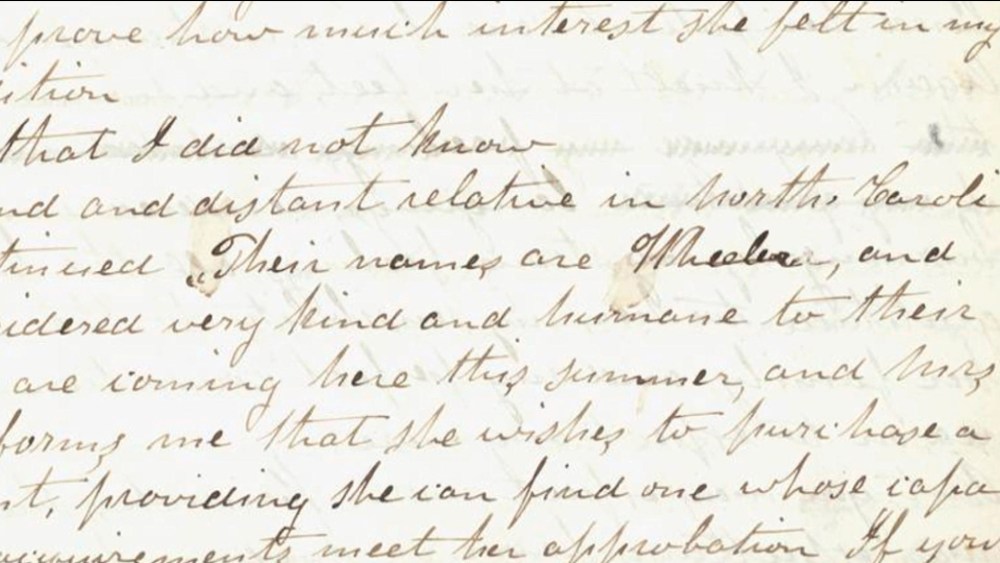 prove how much interest she felt in my
ition
that I did not know
nd and distant relative in North. Caroli
tinued Their names are Wheeler, and
idered very kind and humane to their
are coming here this summer, and Mrs
forms me that she wishes to purchase a
nt, providing she can find one whose capa
acquirements meet her approbation If you